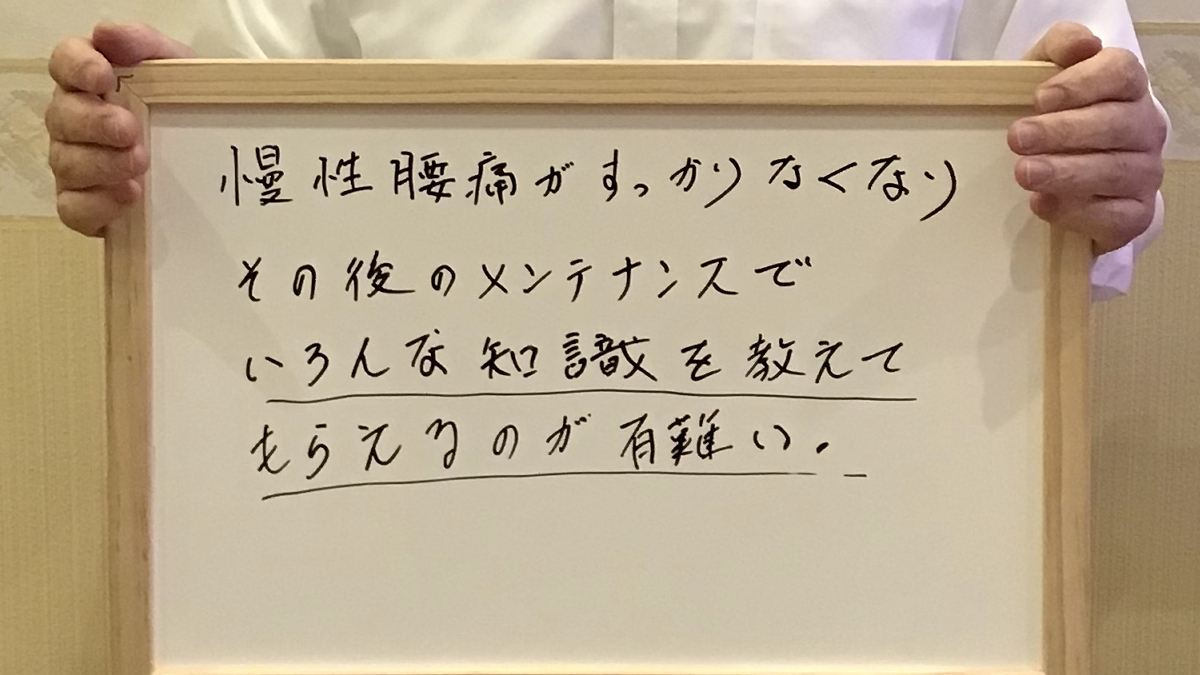 慢性腰痛がすっかりなくなり
その後のメンテナンスで
いろんな知識を教えて
もらえるのが有難い.